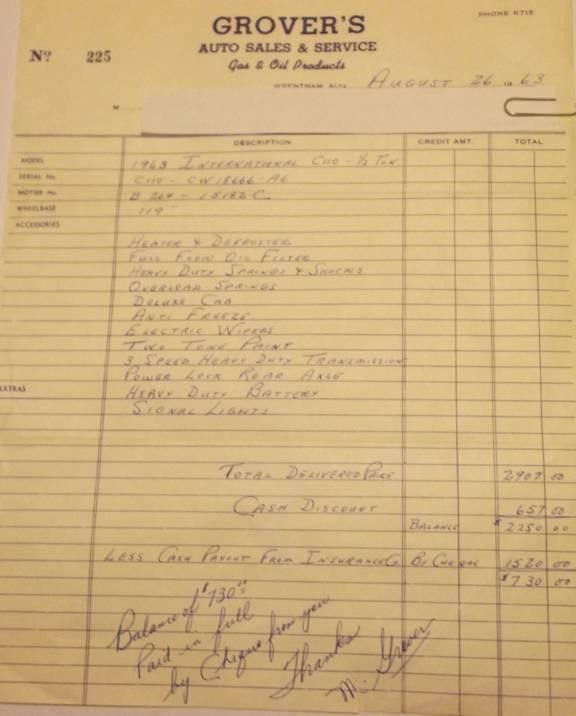 PHONE R715
GROVER'S
Nº 225
AUTO SALES & SERVICE
Gas & Oil Products
WRENTHAM, ALTA. AUGUST 26 1963
M
DESCRIPTION CREDIT AMT. TOTAL
MODEL 1963 INTERNATIONAL C110 - 1/2 TON
SERIAL No. C110 - CW18666-A6
MOTOR No. B 264 - 15182 C
WHEELBASE 119"
ACCESSORIES
HEATER & DEFROSTER
FULL FLOW OIL FILTER
HEAVY DUTY SPRINGS & SHOCKS
OVERLOAD SPRINGS
DELUXE CAB
ANTI FREEZE
ELECTRIC WIPERS
TWO TONE PAINT
3 SPEED HEAVY DUTY TRANSMISSION
POWER LOCK REAR AXLE
EXTRAS HEAVY DUTY BATTERY
SIGNAL LIGHTS
TOTAL DELIVERED PRICE 2907 00
CASH DISCOUNT 657 00
BALANCE $ 2250 00
LESS CASH PAYOUT FROM INSURANCE CO. BY CHEQUE 1520 00
$730 00
Balance of $730.00
Paid in full
by Cheque from you
Thanks
M. Grover